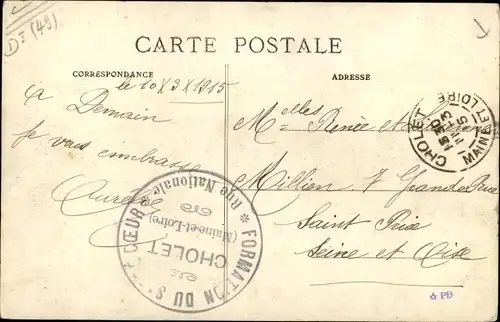 D⁵ (49)
CARTE POSTALE
CORRESPONDANCE
ADRESSE
le 10 X 3 X 1915
à Demain
Je vous embrasse
Mᵉˡˡᵉˢ Renée et
Million 7 Grande Rue
Saint Prix
Seine et Oise
CHOLET
MAINE ET LOIRE
FORMATION DU SACRÉ CŒUR
CHOLET
(Maine-et-Loire)
Rue Nationale
PB